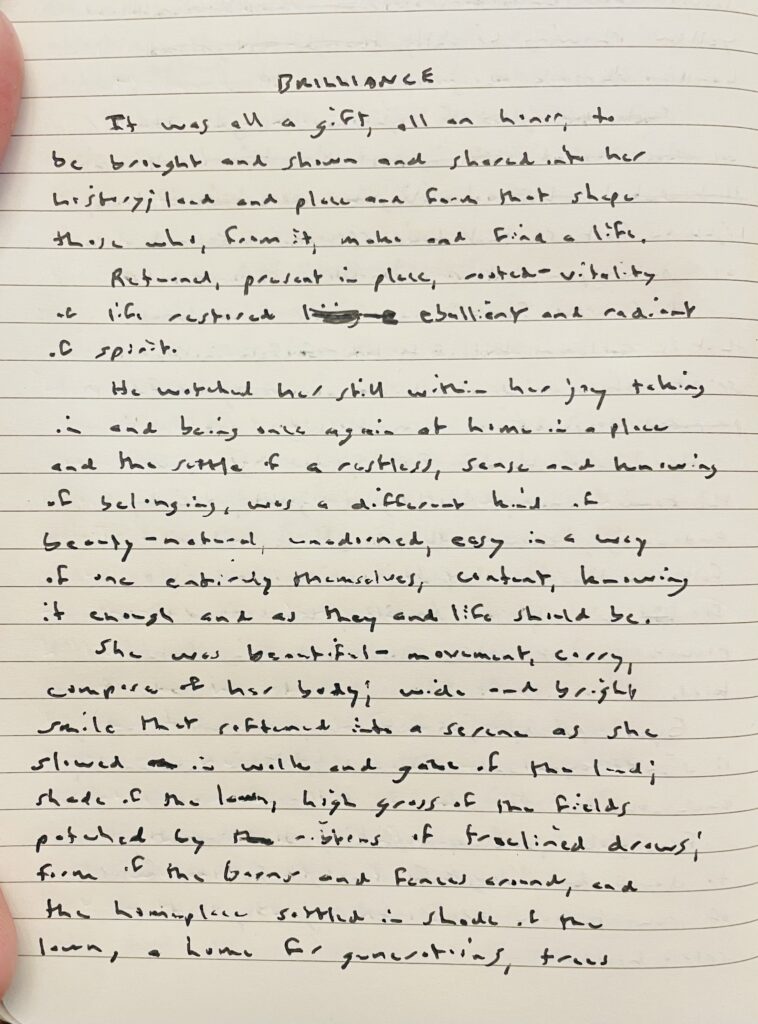 BRILLIANCE
It was all a gift, all an honor, to
be brought and shown and shared into her
history; land and place and form that shape
those who, from it, make and find a life.
Returned, present in place, rooted - vitality
of life restored ebullient and radiant
of spirit.
He watched her still within her joy taking
in and being once again at home in a place
and the settle of a restless, sense and knowing
of belonging, was a different kind of
beauty - natural, unadorned, easy in a way
of one entirely themselves, content, knowing
it enough and as they and life should be.
She was beautiful - movement, carry,
compose of her body; wide and bright
smile that softened into a serene as she
slowed in walk and gaze of the land;
shade of the lawn, high grass of the fields
patched by ribbons of treelined draws;
form of the barns and fences around, and
the homeplace settled in shade of the
lawn, a home for generations, trees